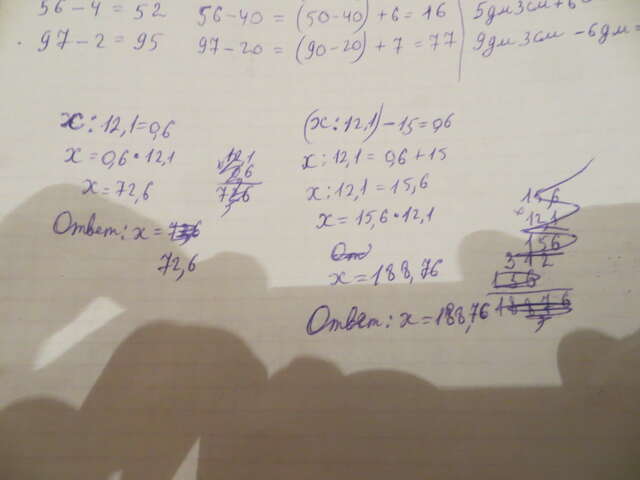 56-4 = 52
56-40 = (50-40)+6 = 16
5дм 3см+6
97-2 = 95
97-20 = (90-20)+7 = 77
9дм 3см -6дм=
x:12,1=0,6
x=0,6•12,1
x=72,6
12,1
0,6
726
Ответ: x=
72,6
(x:12,1)-15=0,6
x:12,1=0,6+15
x:12,1=15,6
x=15,6•12,1
От
x=188,76
Ответ: x=188,76
15,6
12,1
156
312
156
18876